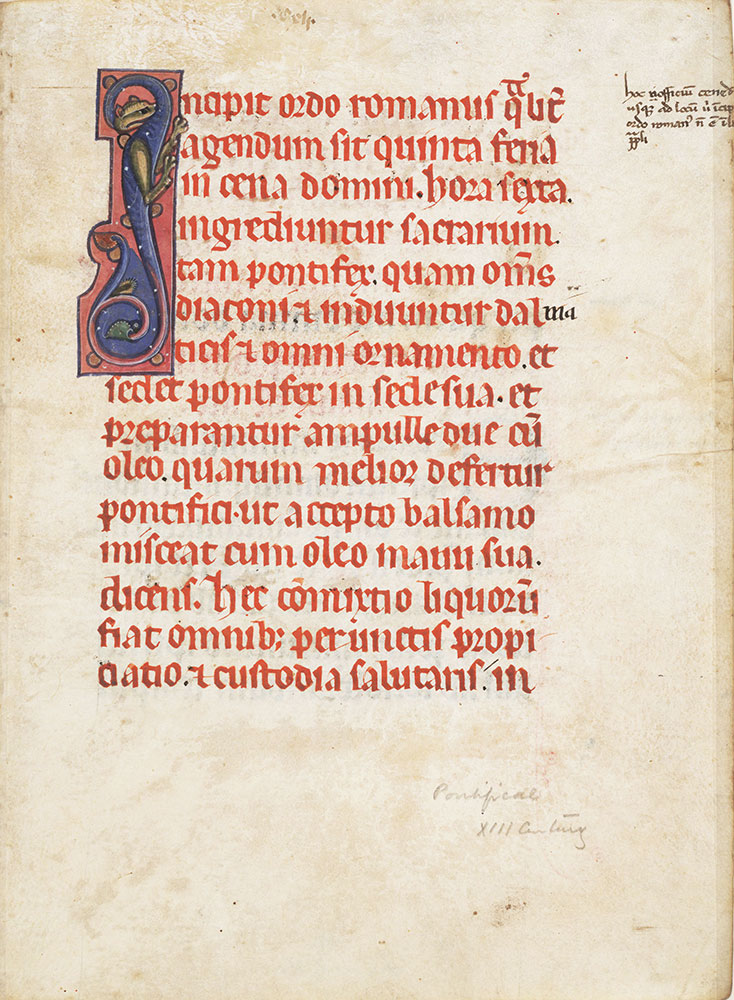 Incipit ordo romanus qualit̄
agendum sit quinta feria
in cena domini. hora sexta.
ingrediuntur sacrarium.
tam pontifex. quam om̄s
diaconi ⁊ induuntur dalma
ticis ⁊ omni ornamento. et
sedet pontifex in sede sua. et
preparantur ampulle due cū
oleo. quarum melior defertur
pontifici. ut accepto balsamo
misceat cum oleo manu sua.
dicens. hec cōmixtio liquorū
fiat omnib; perunctis propi
ciatio. ⁊ custodia salutaris. in
hoc officiū
usq; ad locū
ordo roman᷒
Pontifical
XIII Century